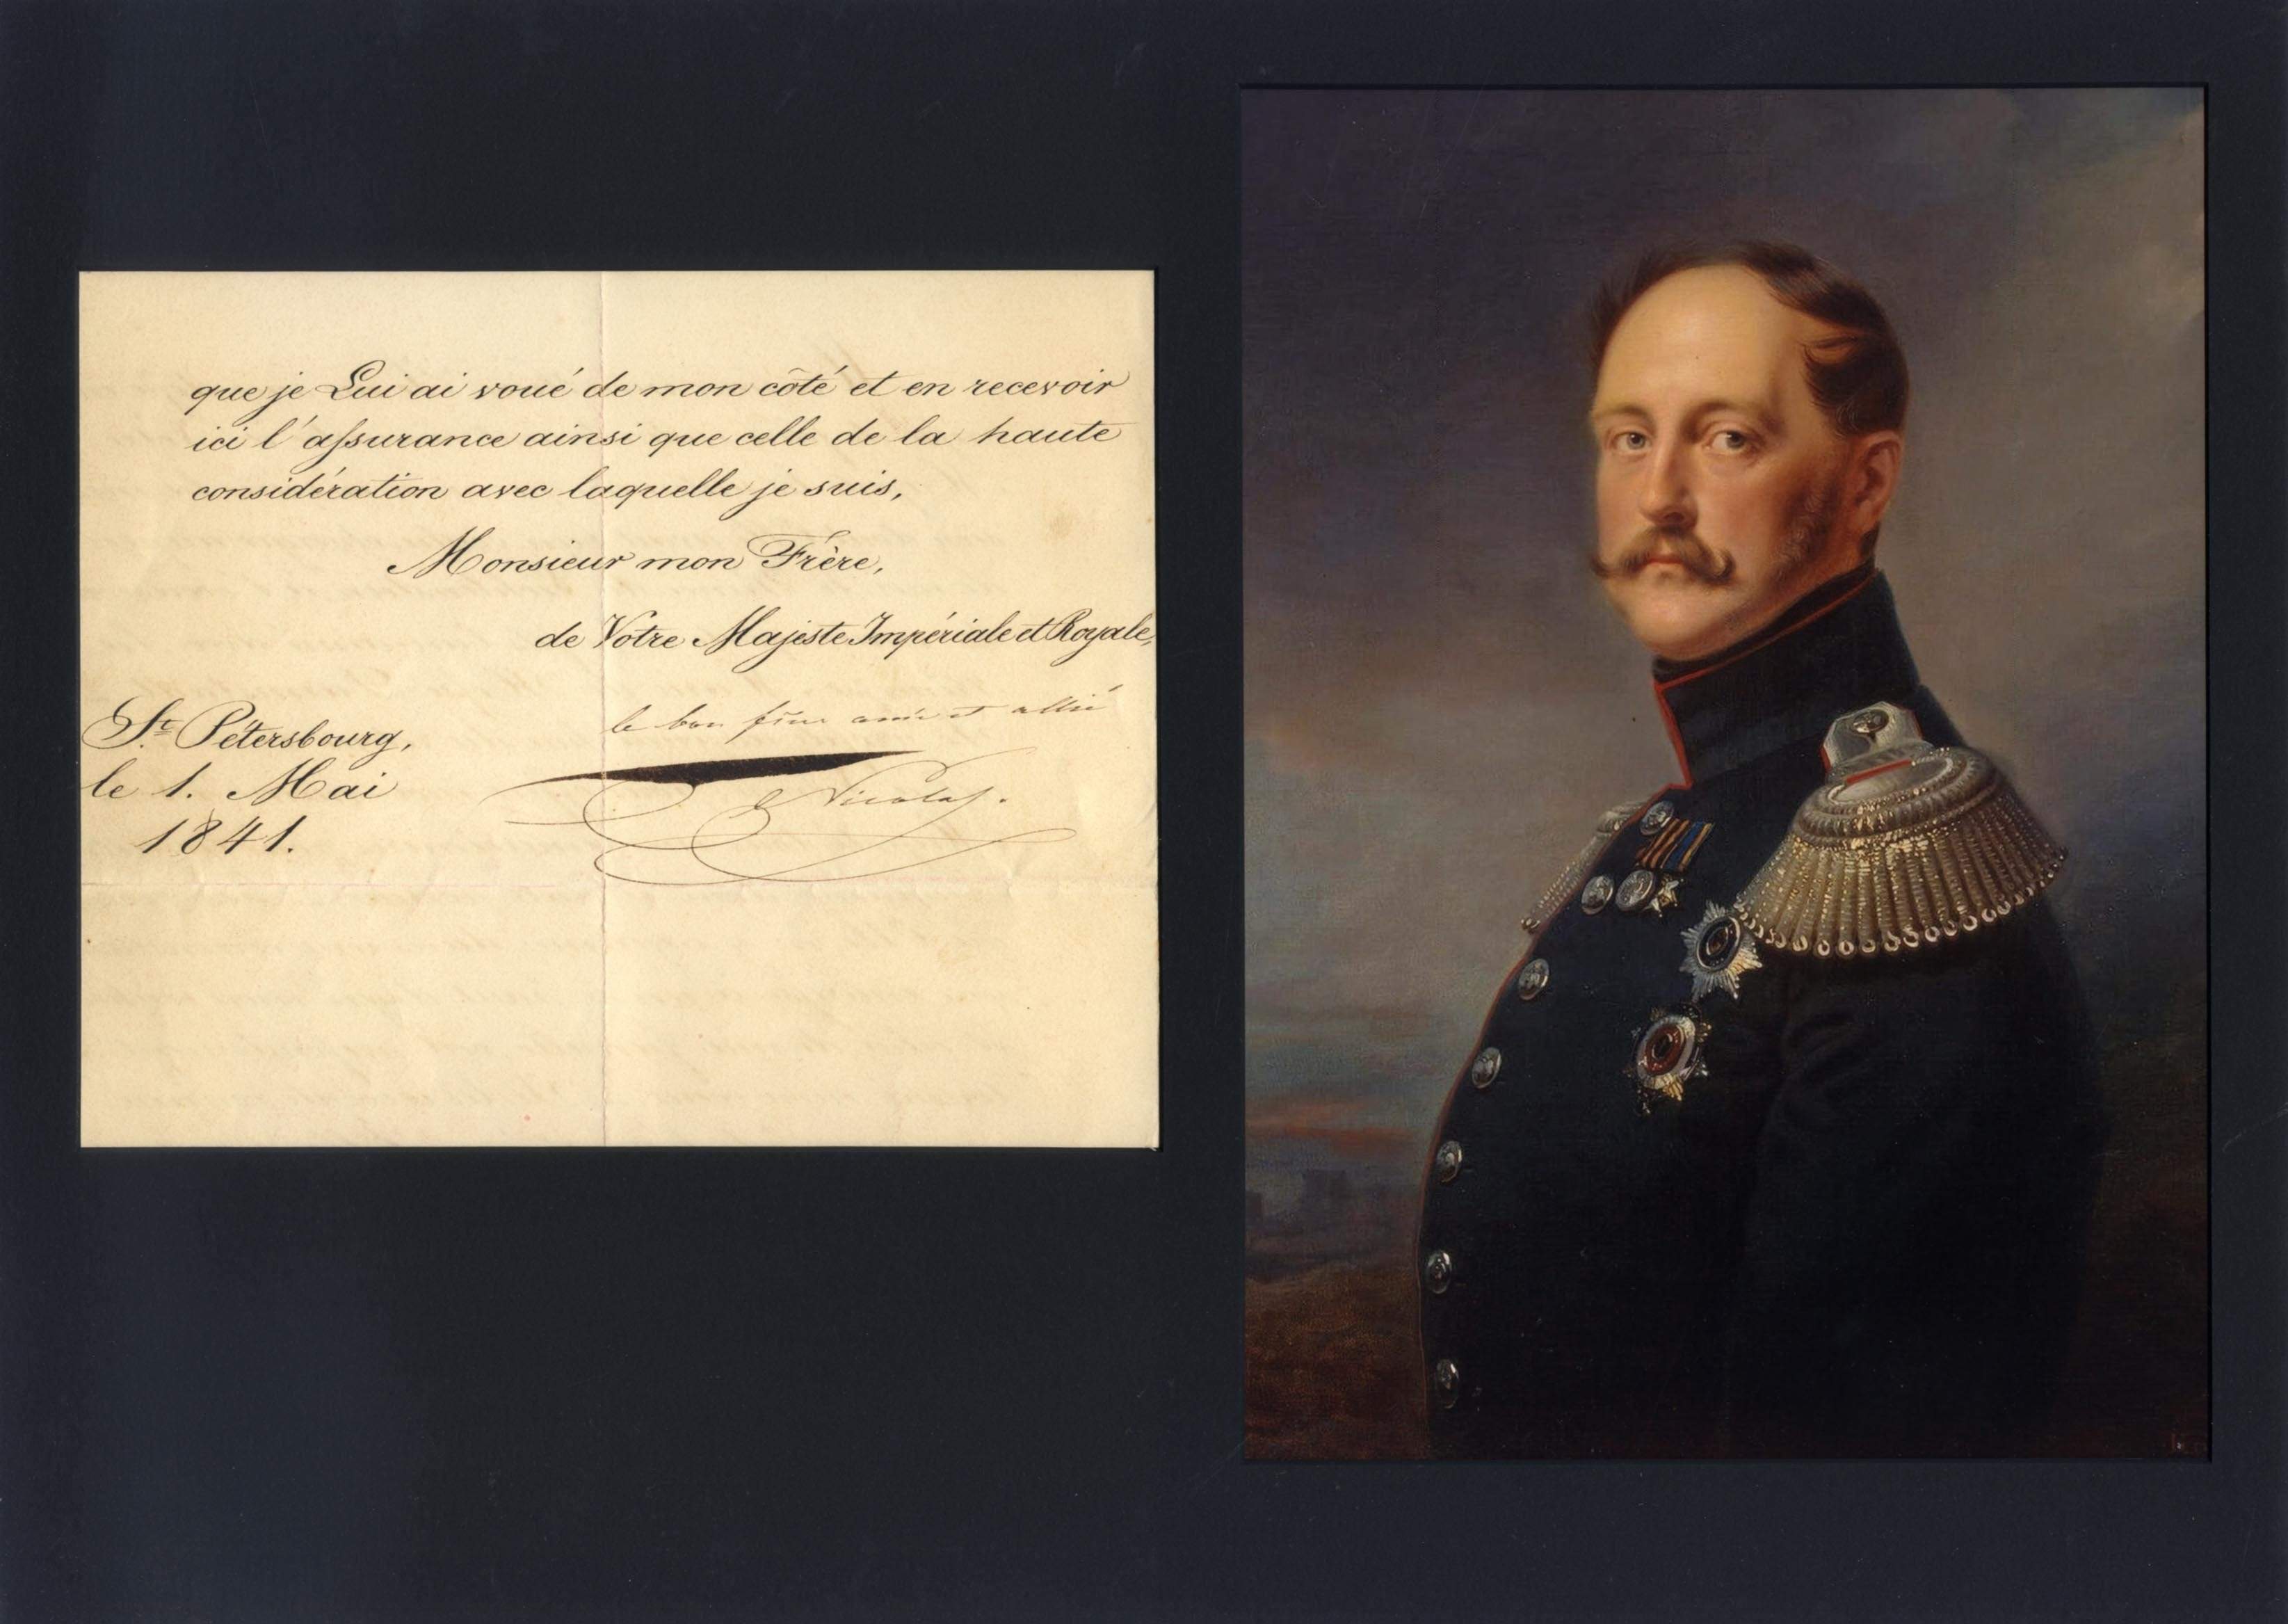 que je Lui ai voué de mon côté et en recevoir
ici l'assurance ainsi que celle de la haute
considération avec laquelle je suis,
Monsieur mon Frère,
de Votre Majeste Impériale et Royale,
le bon frère ami et allié
Nicolas.
St. Pétersbourg,
le 1. Mai
1841.